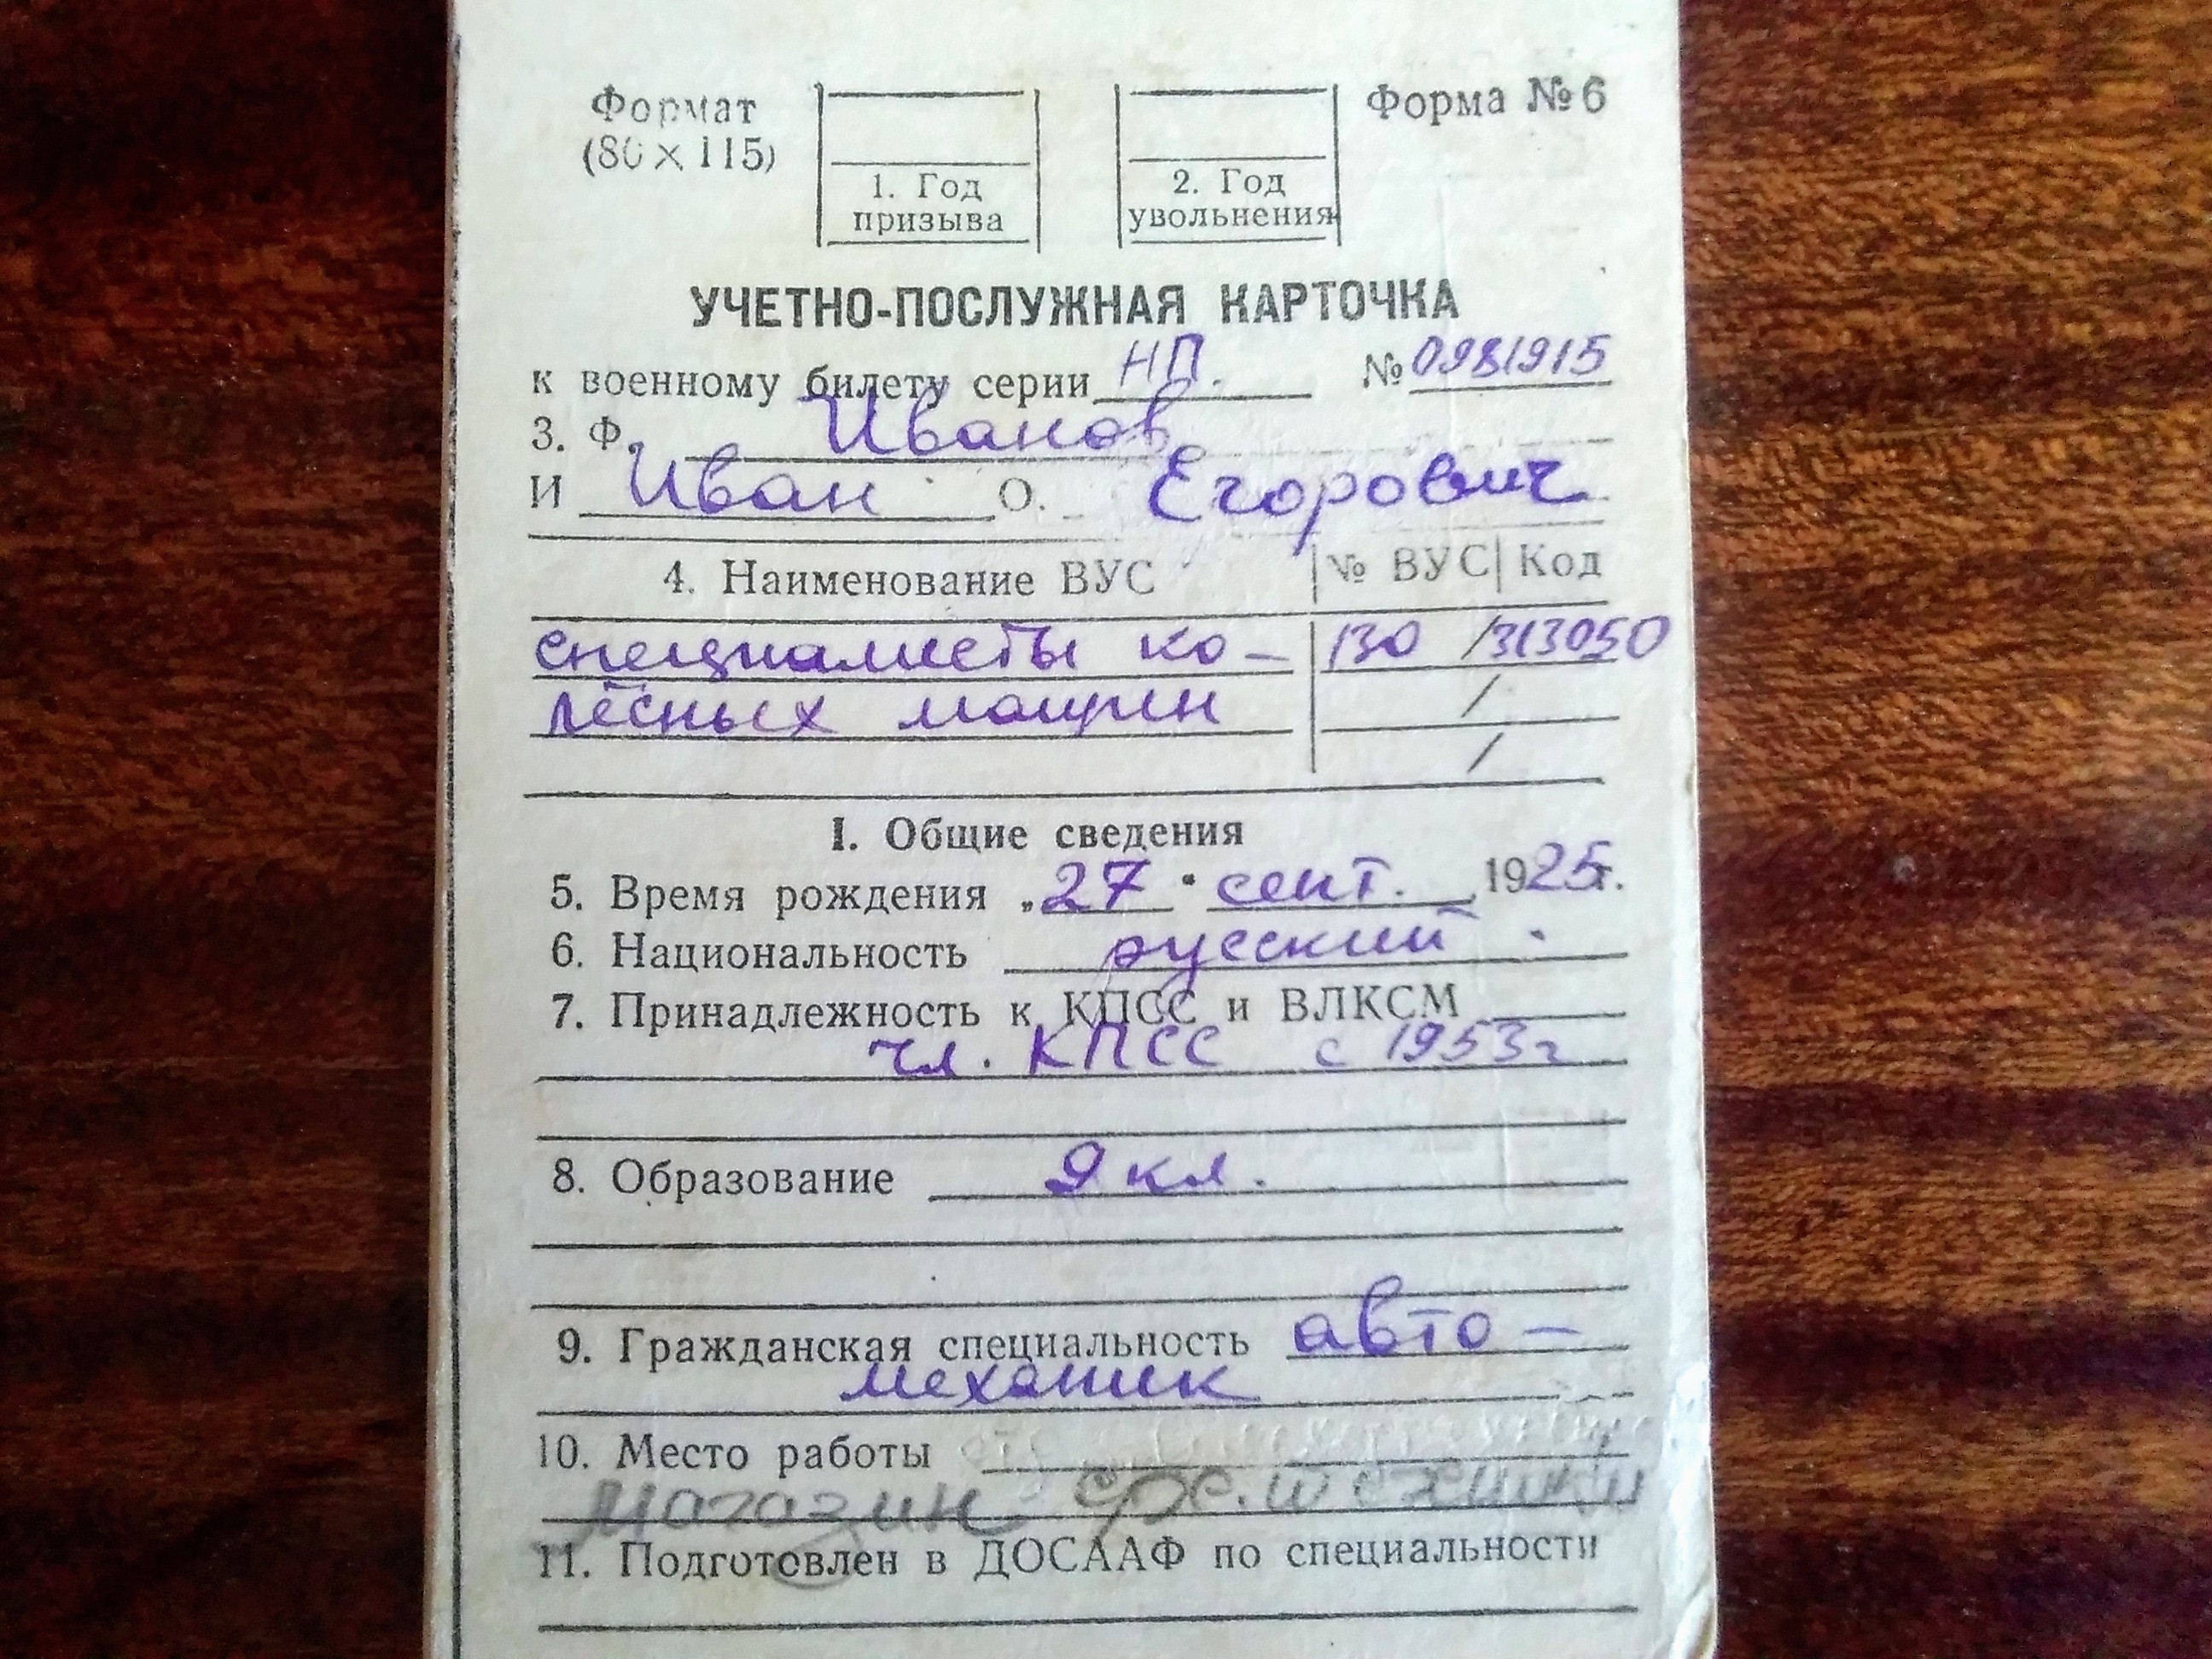 Формат
(80 × 115)
1. Год
призыва
2. Год
увольнения
Форма № 6
УЧЕТНО-ПОСЛУЖНАЯ КАРТОЧКА
к военному билету серии НП. № 0981915
3. Ф. Иванов
И Иван О. Егорович
4. Наименование ВУС | № ВУС | Код
специалисты ко- 130 /313050
лёсных машин /
/
I. Общие сведения
5. Время рождения „27" сент. 1925г.
6. Национальность русский
7. Принадлежность к КПСС и ВЛКСМ
чл. КПСС с 1953г
8. Образование 9 кл.
9. Гражданская специальность авто-
механик
10. Место работы
магазин
11. Подготовлен в ДОСААФ по специальности